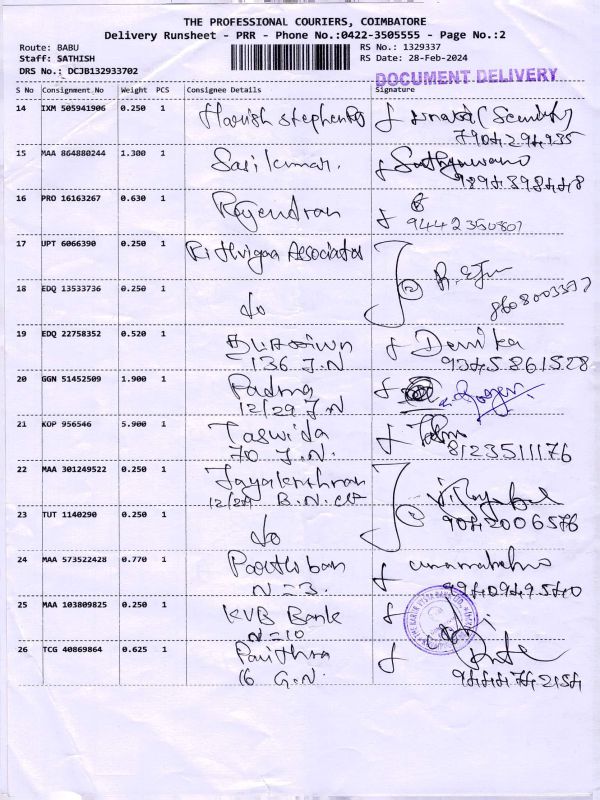 THE PROFESSIONAL COURIERS, COIMBATORE
Delivery Runsheet - PRR - Phone No.:0422-3505555 - Page No.:2
Route: BABU
Staff: SATHISH
DRS No.: DCJB132933702
RS No.: 1329337
RS Date: 28-Feb-2024
DOCUMENT DELIVERY
S No Consignment_No Weight PCS Consignee Details Signature
14 IXM 505941906 0.250 1 Harish Stephen
15 MAA 864880244 1.300 1 Sasikumar.
16 PRO 16163267 0.630 1 Rajendran
9442350807
17 UPT 6066390 0.250 1 Rithvigaa Associates
18 EDQ 13533736 0.250 1 do
19 EDQ 22758352 0.520 1
136 J.N
20 GGN 51452509 1.900 1 Padma
12/29 J.N
21 KOP 956546 5.900 1 Taswida
70 J.N. 8123511176
22 MAA 301249522 0.250 1 Jayakrishnan
12/29 B.N.
23 TUT 1140290 0.250 1 do 9042006576
24 MAA 573522428 0.770 1 Parthiban
N=3.
25 MAA 103809825 0.250 1 KVB Bank
N=10
26 TCG 40869864 0.625 1 Pavithra
16 G.N.